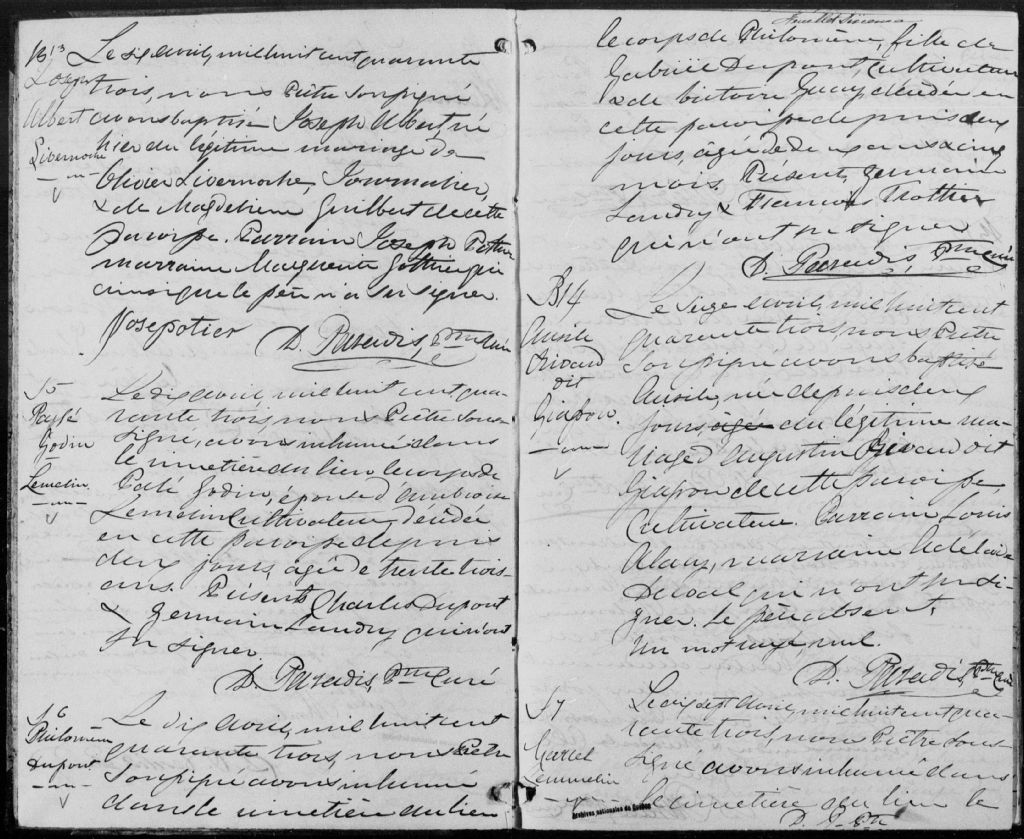 B, 13
Joseph
Albert
Livernoche
Le six avril, mil huit cent quarante
trois, nous Prêtre soussigné
avons baptisé Joseph Albert, né
hier du légitime mariage de
Olivier Livernoche, Journalier,
& de Magdeleine Guilbert de cette
paroisse. Parrain Joseph
marraine Marguerite qui
ainsi que le père n'a su signer.
D. Paradis, Ptre Curé
S5
Godin
Lemelin
Le dix avril, mil huit cent qua-
rante trois, nous Prêtre sous-
signé, avons inhumé dans
le cimetière du lieu le corps de
Godin, épouse d'Ambroise
Lemelin Cultivateur, décédée
en cette paroisse depuis
deux jours, agée de trente trois
ans. Présents Charles Dupont
& Germain Landry qui n'ont
su signer.
D. Paradis, Ptre Curé
S6
Philomène
Dupont
Le dix avril, mil huit cent
quarante trois, nous Prêtre
soussigné avons inhumé
dans le cimetière du lieu
Feuillet sixième
le corps de Philomène, fille de
Gabriël Dupont, Cultivateur
& de Victoire décédée en
cette paroisse depuis deux
jours, agée de deux ans & cinq
mois. Présents, Germain
Landry & François Trottier
qui n'ont su signer
D. Paradis, Ptre Curé
B14
Rivard
dit
Giapon
Le avril, mil huit cent
quarante trois, nous Prêtre
soussigné avons baptisé
née depuis deux
jours agée du légitime ma-
riage d'Augustin Rivard dit
Giapon de cette paroisse
Cultivateur. Parrain Louis
marraine Adélaïde
qui n'ont su si-
gner. Le père absent.
Un mot rayé, nul.
D. Paradis, Ptre Curé
S7
Marcel
Lemmelin
Le dix sept avril, mil huit cent qua-
rante trois, nous Prêtre sous-
signé avons inhumé dans
le cimetière du lieu le
D. P. Ptre
Archives nationales du Québec